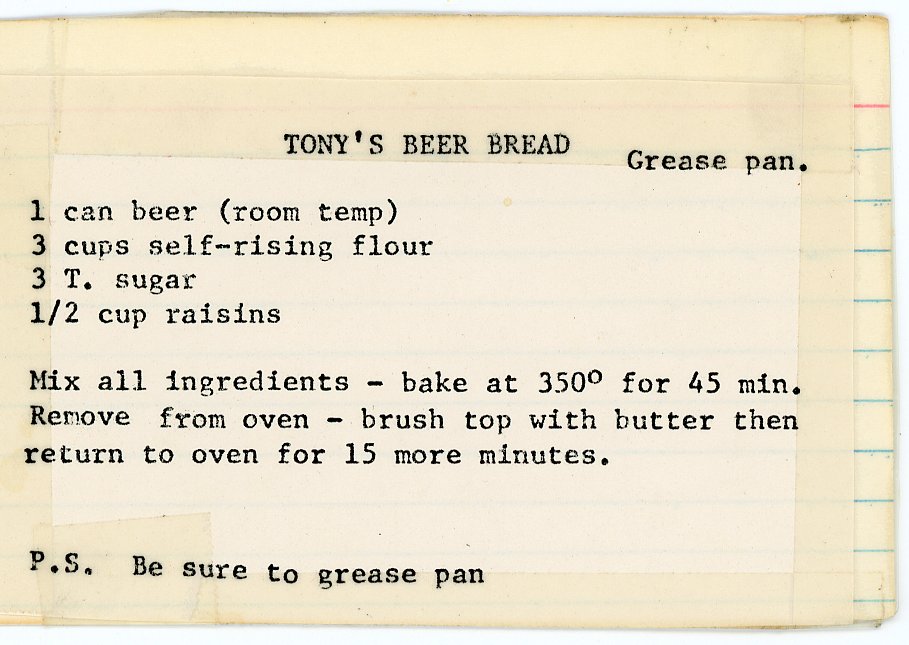 TONY'S BEER BREAD
Grease pan.
1 can beer (room temp)
3 cups self-rising flour
3 T. sugar
1/2 cup raisins
Mix all ingredients - bake at 350º for 45 min.
Remove from oven - brush top with butter then
return to oven for 15 more minutes.
P.S. Be sure to grease pan